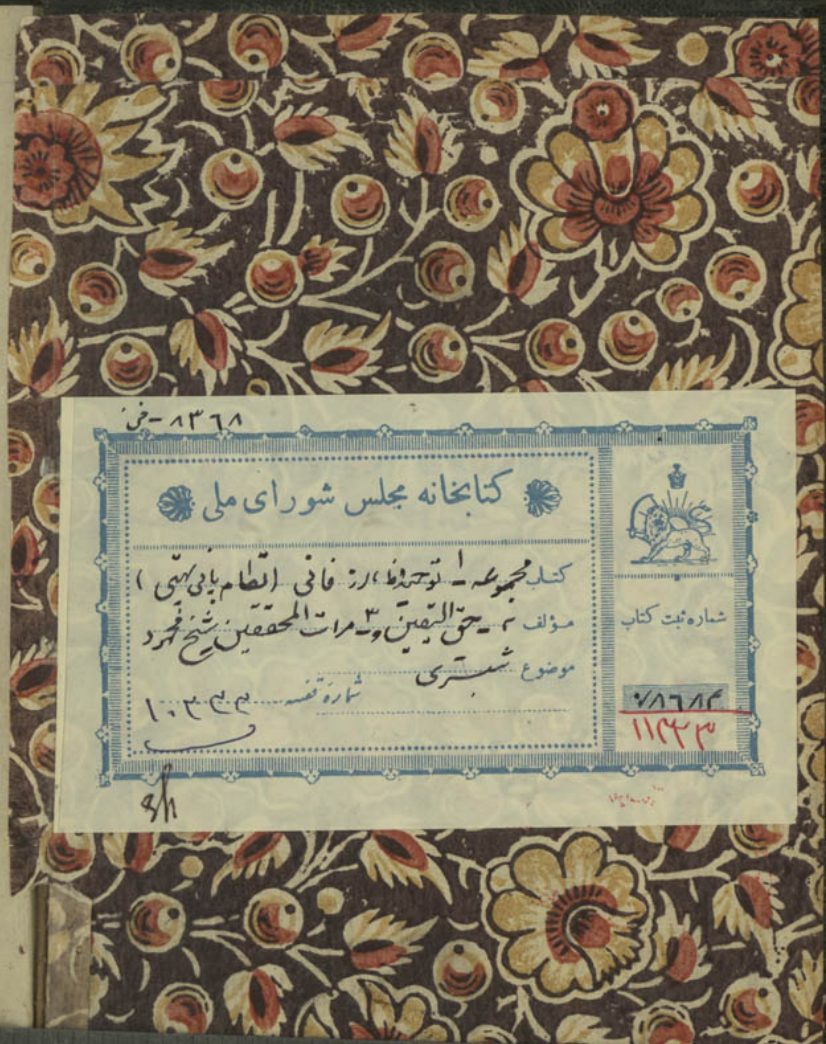 ۸۳۶۸ - فی
کتابخانه مجلس شورای ملی
کتاب مجموعه ۱ - از فانی (نظام
مؤلف ۲ - حق الیقین و ۳ - مرات المحققین شیخ محمود
موضوع شبستری
شماره قفسه ۱۰۳۳۳
شماره ثبت کتاب
۱۱۳۳۳